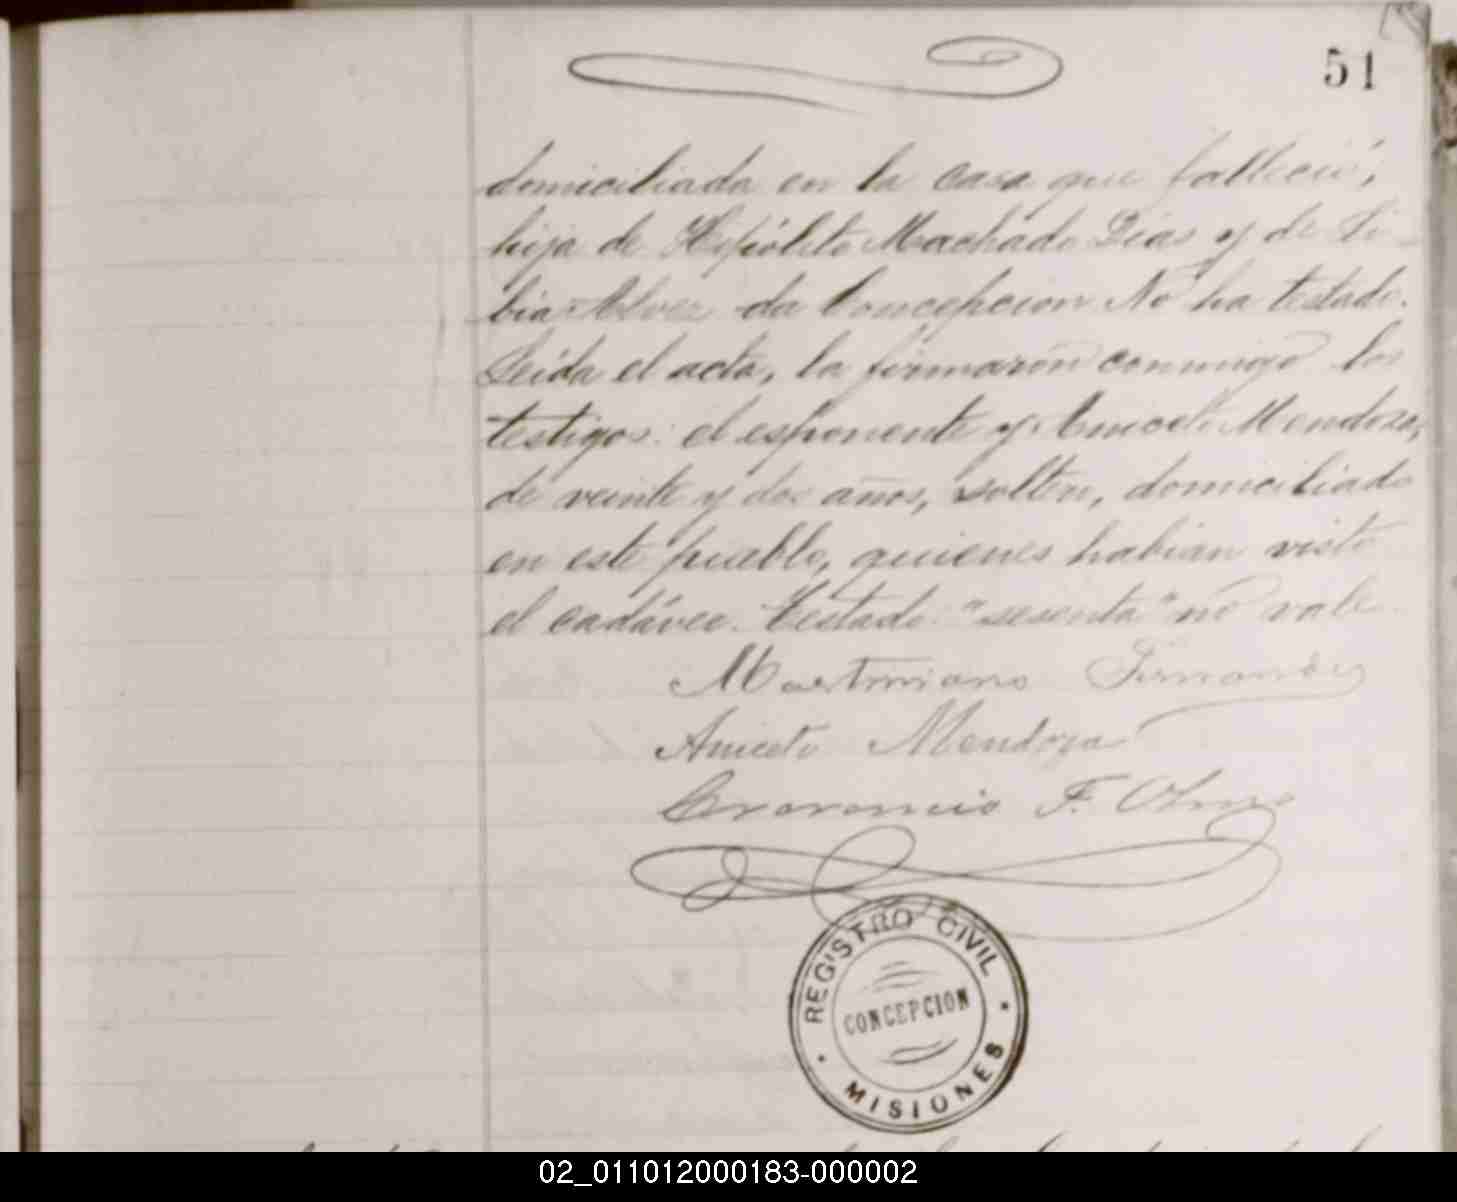 51
domiciliada en la casa que falleció,
hija de Hipólito Machado Dias y de Li-
bia Alvez da Concepcion No ha testado.
Leída el acta, la firmaron conmigo los
testigos: el esponente y Aniceto Mendoza,
de veinte y dos años, soltero, domiciliado
en este pueblo, quienes habian visto
el cadáver. Testado: "sesenta" no vale.
Martiniano Fernandez
Aniceto Mendoza
F. Olmo
REGISTRO CIVIL
CONCEPCION
MISIONES
02_011012000183-000002